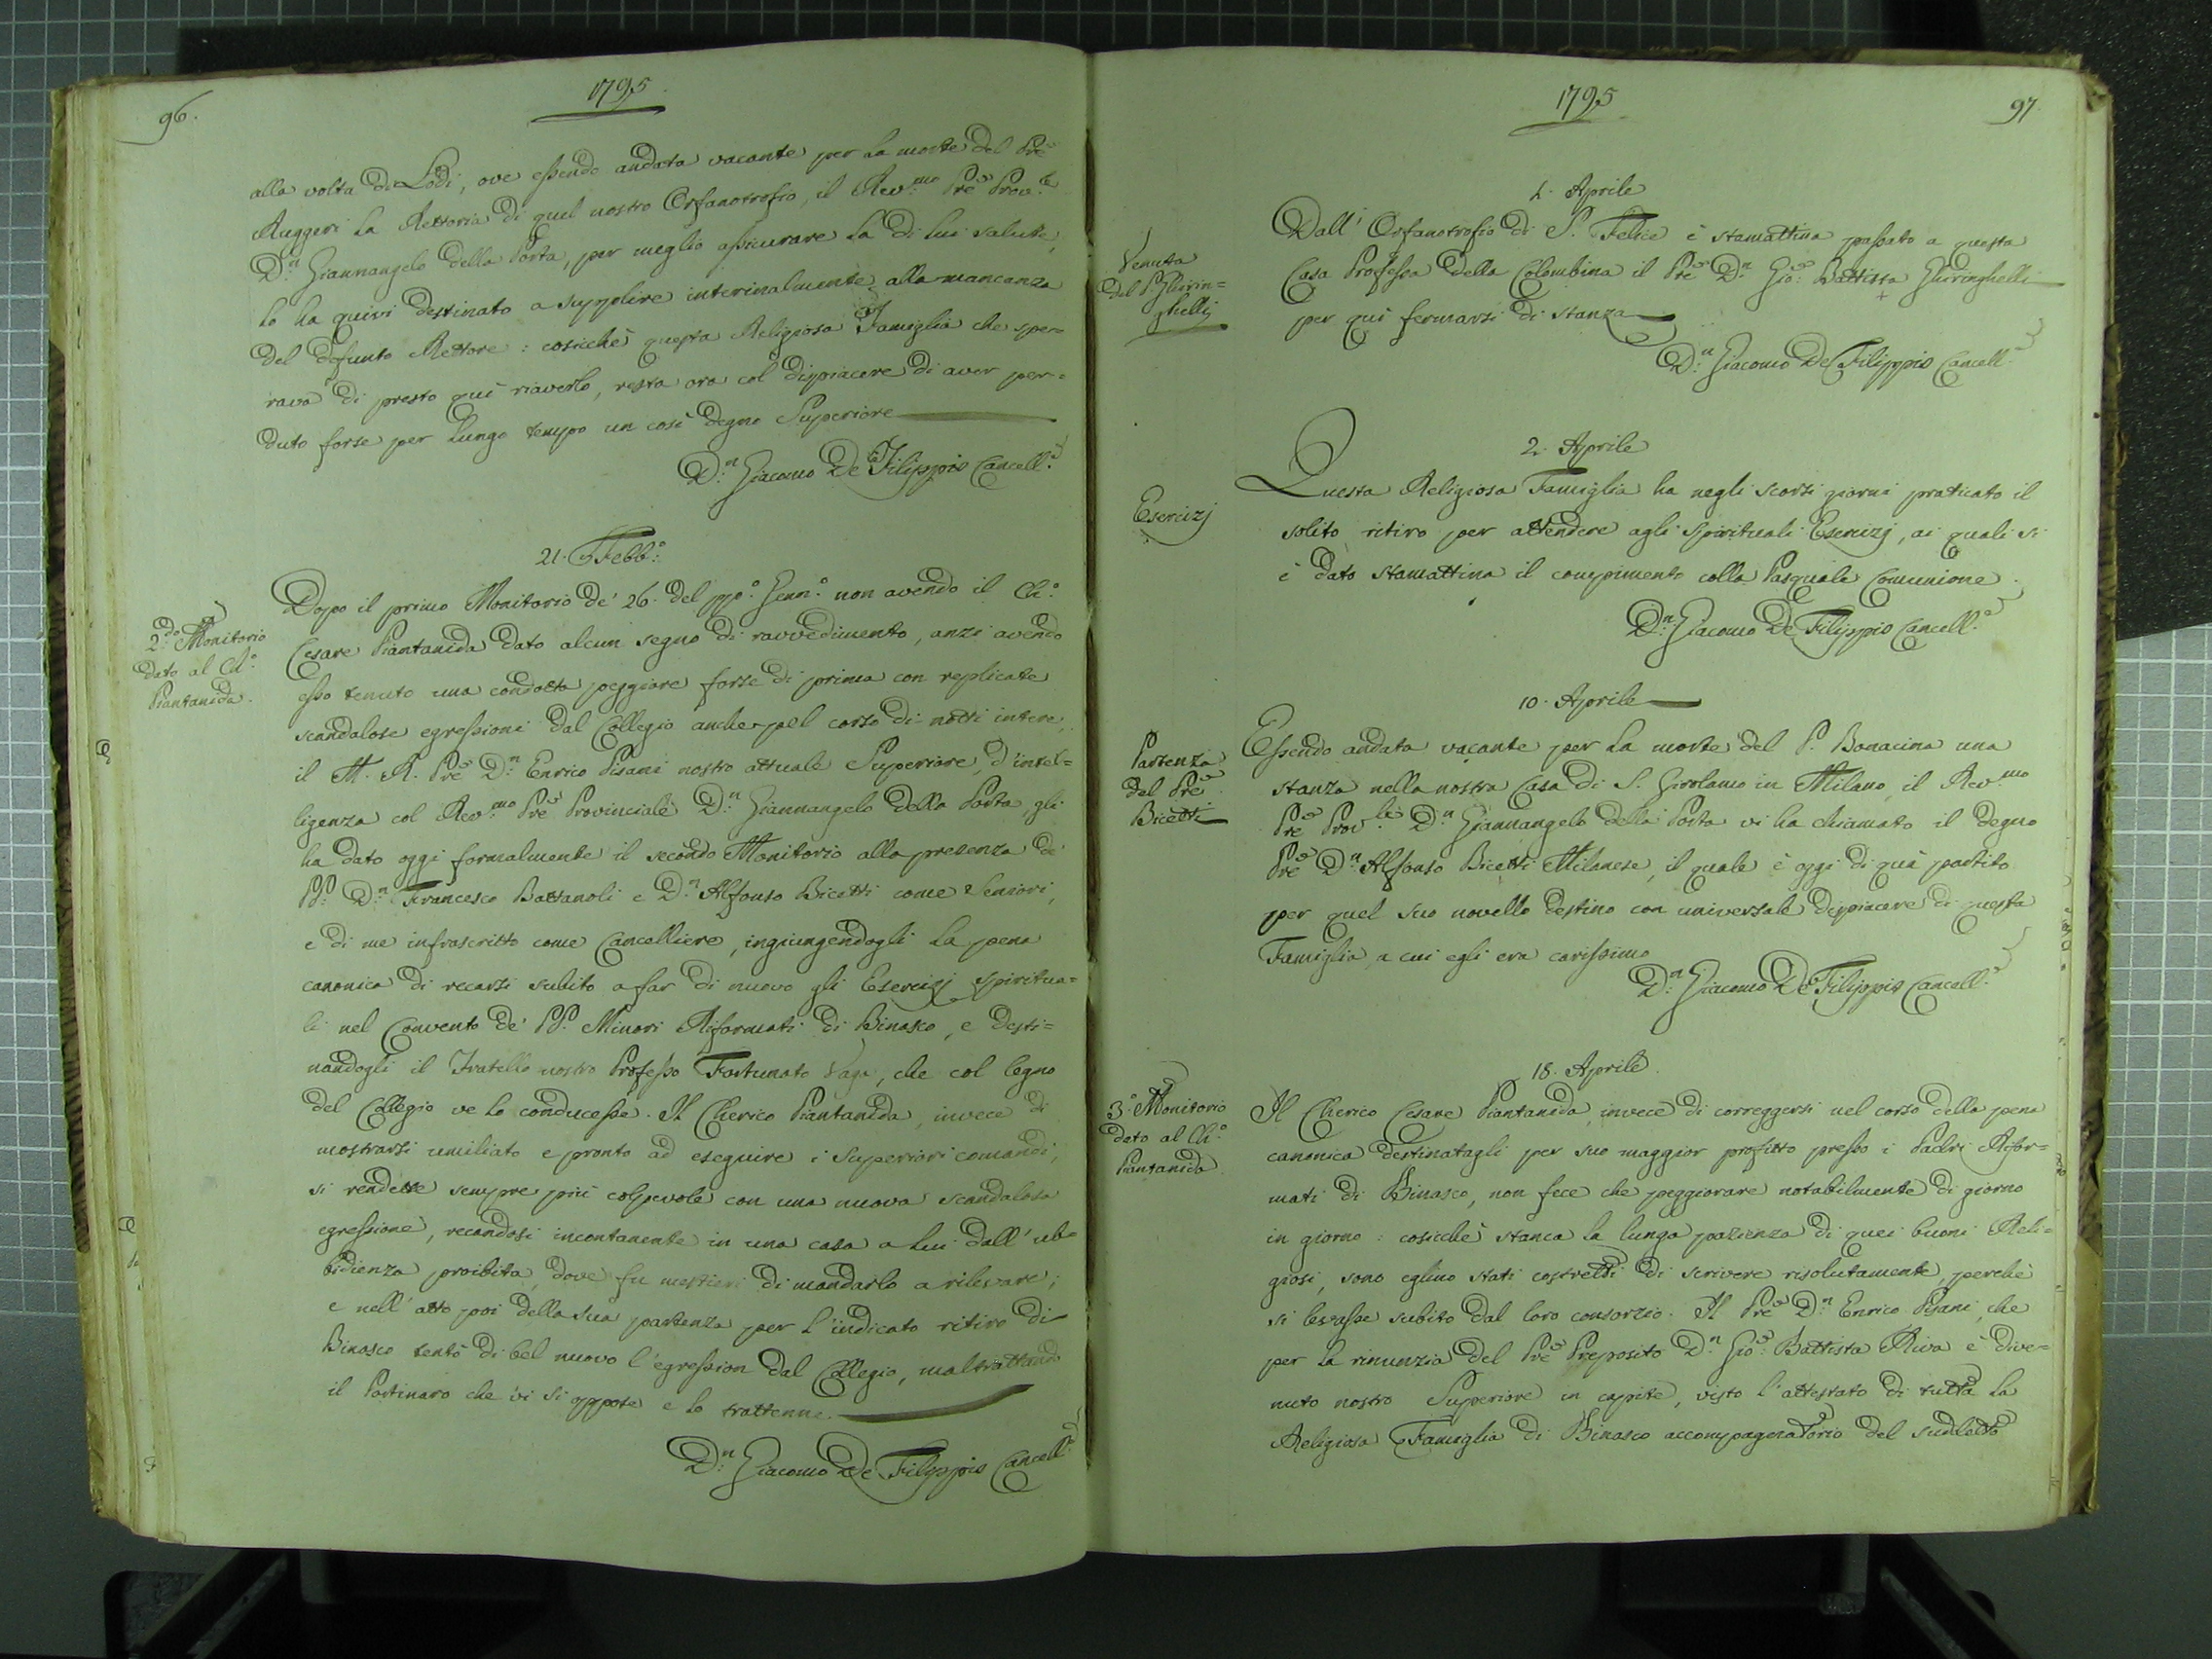 96.
1795.
alla volta di Lodi, ove essendo andata vacante per la morte del Pre
Ruggeri la Rettoria di quel nostro Orfanotrofio, il Rev.mo Pre Prov.le
D.n Giannangelo della Porta, per meglio assicurare la di lui salute,
lo ha quivi destinato a supplire interinalmente alla mancanza
del defunto Rettore: cosicchè questa Religiosa Famiglia che spe-
rava di presto quì riaverlo, resta ora col dispiacere di aver per-
duto forse per lungo tempo un così degno Superiore
D.n Giacomo De Filippis Cancell.e
21. Febb.o
2.do Monitorio
dato al Ch.o
Piantanida.
Dopo il primo Monitorio de' 26. del ppo. Genn.o non avendo il Ch.o
Cesare Piantanida dato alcun segno di ravvedimento, anzi avendo
esso tenuto una condotta peggiore forse di prima con replicate
scandalose egressioni dal Collegio anche pel corso di notti intere,
il M. R. Pre D.n Enrico Pisani nostro attuale Superiore, d'intel=
ligenza col Rev.mo Pre Provinciale D.n Giannangelo della Porta, gli
ha dato oggi formalmente il secondo Monitorio alla presenza de'
PP. D.n Francesco Battanoli e D.n Alfonso Bicetti come Seniori,
e di me infrascritto come Cancelliere, ingiungendogli la pena
canonica di recarsi subito a far di nuovo gli Esercizj Spiritua=
li nel Convento de' PP. Minori Riformati di Binasco, e desti=
nandogli il Fratello nostro Professo Fortunato Vaga, che col legno
del Collegio ve lo conducesse. Il Cherico Piantanida, invece di
mostrarsi umiliato e pronto ad eseguire i Superiori comandi,
si rendette sempre più colpevole con una nuova scandalosa
egressione, recandosi incontanente in una casa a lui dall'ub=
bidienza proibita, dove fu mestieri di mandarlo a rilevare;
e nell'atto poi della sua partenza per l'indicato ritiro di
Binasco tentò di bel nuovo l'egression dal Collegio, maltrattando
il Portinaro che vi si oppose e lo trattenne.
D.n Giacomo De Filippis Cancell.e
1795
97.
1. Aprile
Venuta
del P. Ghirin=
ghelli
Dall'Orfanotrofio di S. Felice è stamattina passato a questa
Casa Professa della Colombina il Pre D.n Gio: Battista Ghiringhelli
per quì fermarsi di stanza
D.n Giacomo De Filippis Cancell.e
2. Aprile
Esercizj
Questa Religiosa Famiglia ha negli scorsi giorni praticato il
solito ritiro per attendere agli Spirituali Esercizj, ai quali si
è dato stamattina il compimento colla Pasquale Comunione.
D.n Giacomo De Filippis Cancell.e
10. Aprile
Partenza
del Pre
Bicetti
Essendo andata vacante per la morte del P. Bonacina una
stanza nella nostra Casa di S. Girolamo in Milano, il Rev.mo
Pre Prov.le D.n Giannangelo della Porta vi ha chiamato il degno
Pre D.n Alfonso Bicetti Milanese, il quale è oggi di quà partito
per quel suo novello destino con universale dispiacere di questa
Famiglia, a cui egli era carissimo
D.n Giacomo De Filippis Cancell.e
18. Aprile
3.o Monitorio
dato al Ch.o
Piantanida
Il Cherico Cesare Piantanida, invece di correggersi nel corso della pena
canonica destinatagli per suo maggior profitto presso i Padri Rifor=
mati di Binasco, non fece che peggiorare notabilmente di giorno
in giorno: cosicchè stanca la lunga pazienza di quei buoni Reli=
giosi, sono eglino stati costretti di scrivere risolutamente, perchè
si levasse subito dal loro consorzio. Il Pre D.n Enrico Pisani, che
per la rinunzia del Pre Preposito D.n Gio: Battista Riva è dive=
nuto nostro Superiore in capite, visto l'attestato di tutta la
Religiosa Famiglia di Binasco accompagnatorio del suddetto